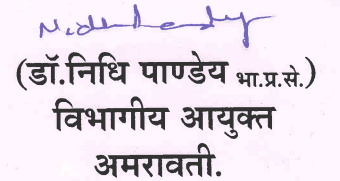 (डॉ.निधि पाण्डेय भा.प्र.से.)
विभागीय आयुक्त
अमरावती.